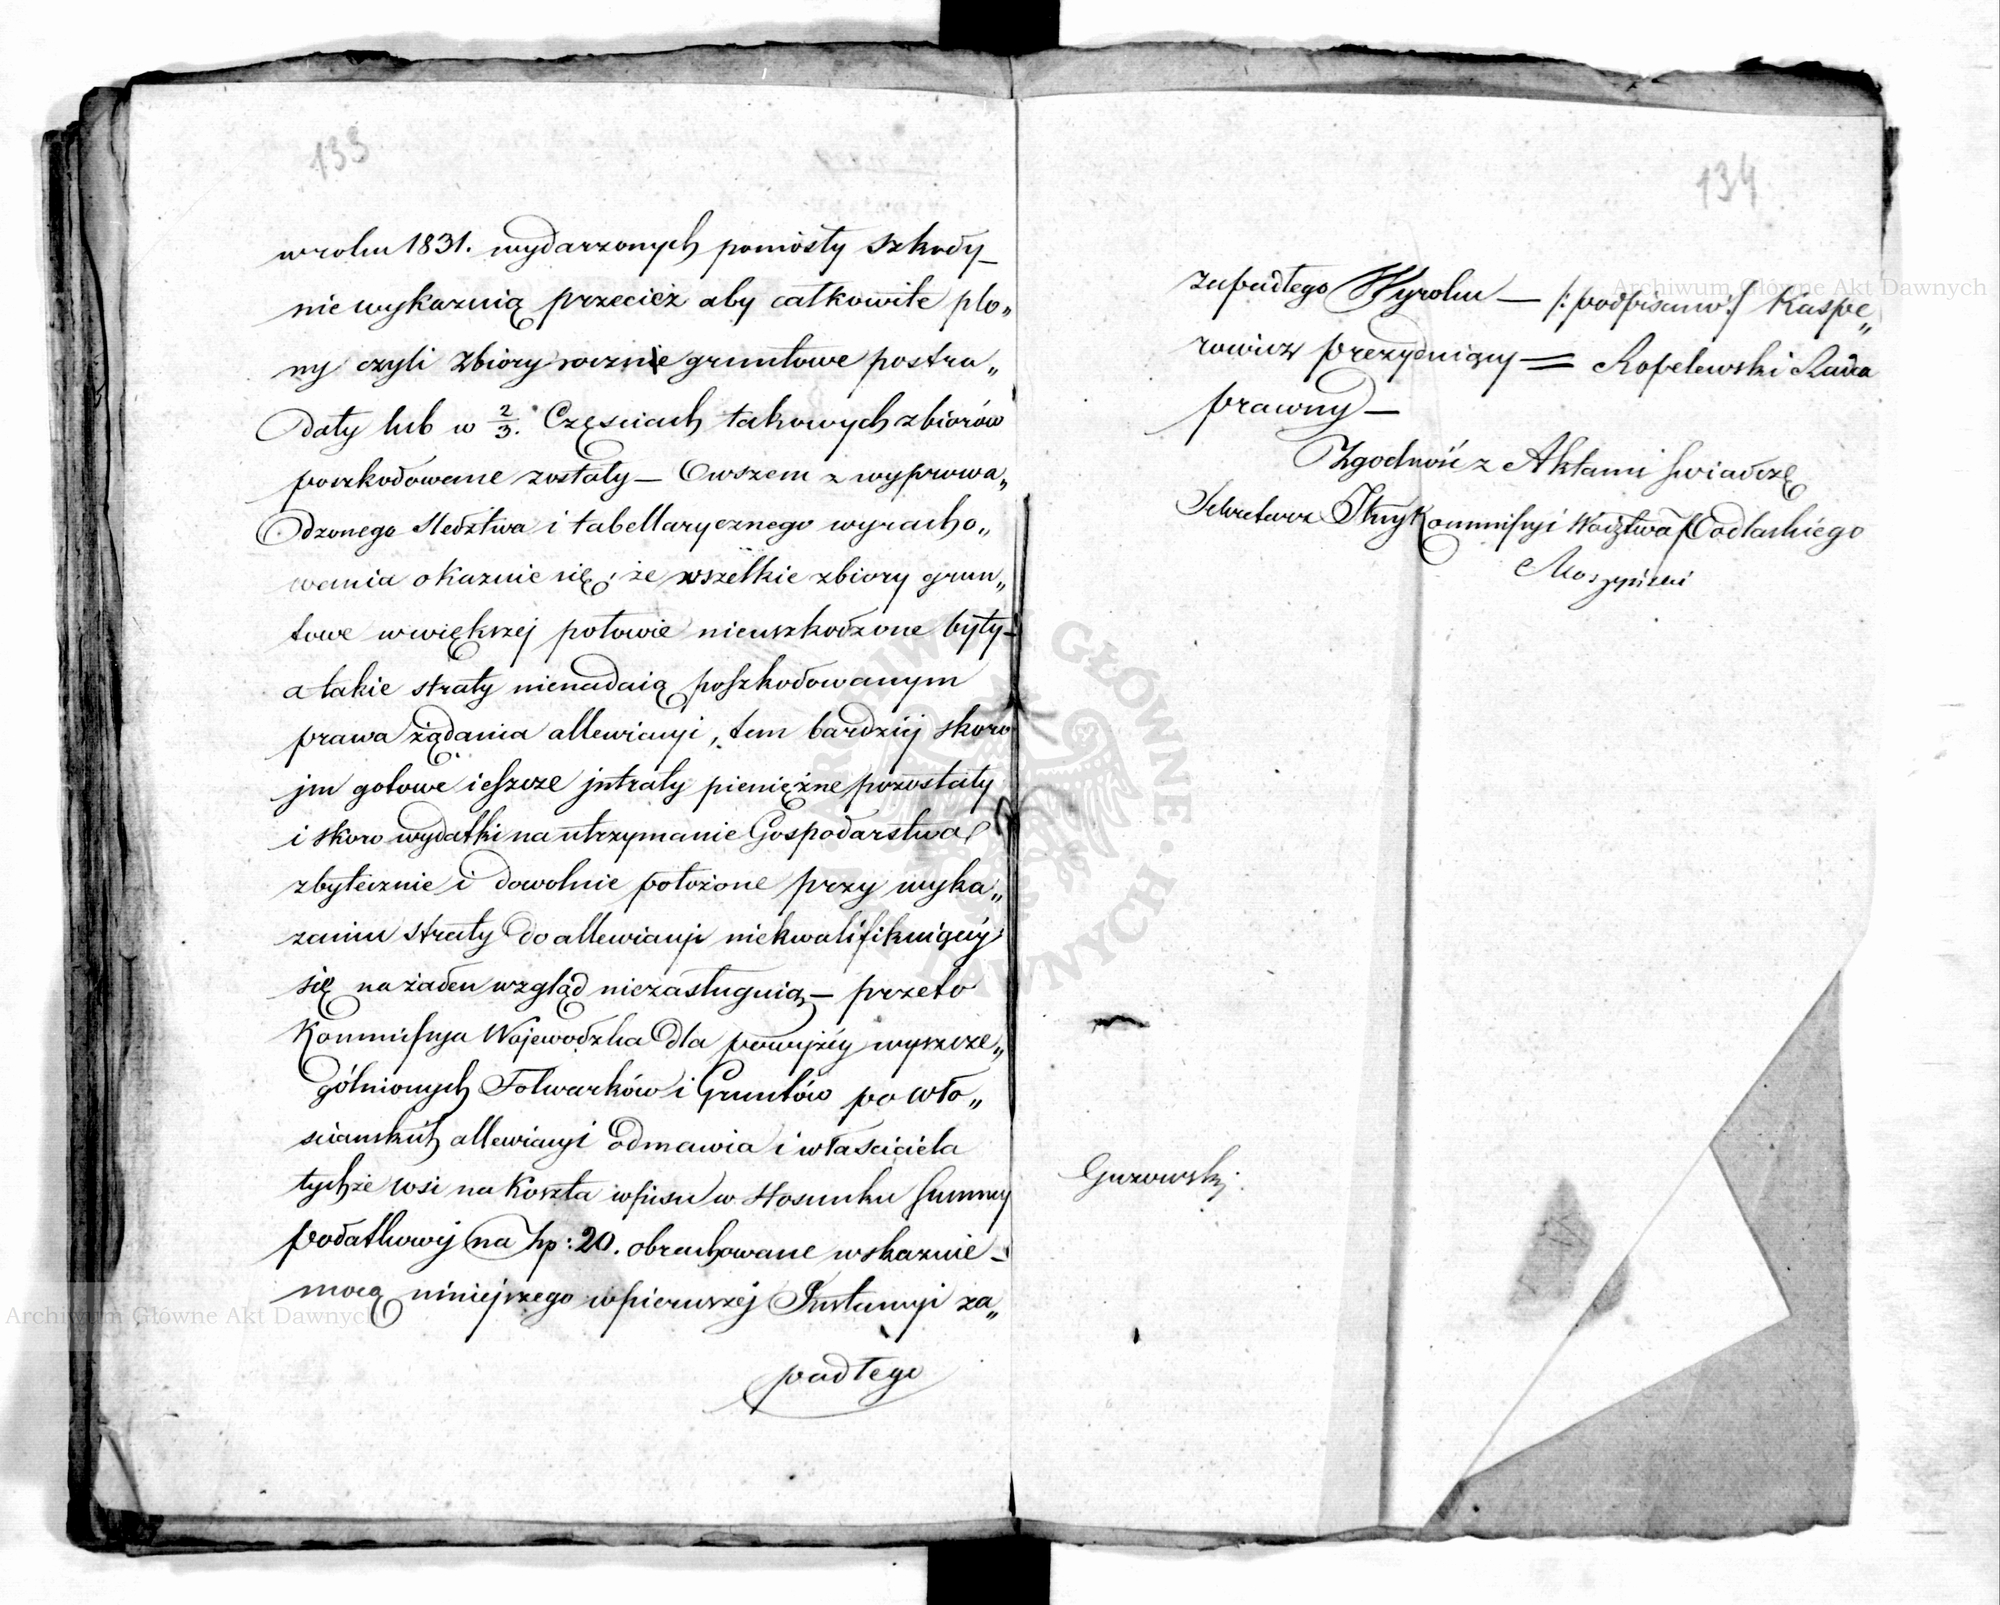 133
w roku 1831. wydarzonych poniosły szkody_
nie wykazuią przecież aby całkowite plo„
ny czyli zbiory rocznie gruntowe postra„
dały lub w 2/3. Częściach takowych zbiorów
poszkodowane zostały — Owszem z wyprowa„
dzonego Sledztwa i tabellarycznego wyracho„
wania okazuie się, że wszelkie zbiory grun„
towe w większej połowie nieuszkodzone były—
a takie straty nienadaią poszkodowanym
prawa żądania allewiacyi, tem bardziej skoro
jm gotowe ieszcze jntraty pieniężne pozostały
i skoro wydatki na utrzymanie Gospodarstwa
zbytecznie i dowolnie położone przy wyka„
zaniu straty do allewiacyi niekwalifikuiącej
się na żaden wzgląd niezasługuią — przeto
Kommissyja Wojewodzka dla powyżey wyszcze„
gólnionych Folwarków i Gruntów po wło„
scianskich allewiacyi odmawia i właściciela
tychże wsi na Koszta wpisu w Stosunku Summy
podatkowej na zp: 20. obrachowane wskazuie —
mocą niniejszego w pierwszej Instancyi za„
padłego
134
zapadłego Wyroku — /: podpisano :/ Kaspe„
rowicz prezyduiący = Kopelewski Radca
prawny —
Zgodność z Aktami świadczę
Sekretarz Kommissyi Wodztwa Podlaskiego
Moszyński
Guzowski.
Archiwum Główne Akt Dawnych
Archiwum Główne Akt Dawnych
ARCHIWUM GŁÓWNE AKT DAWNYCH